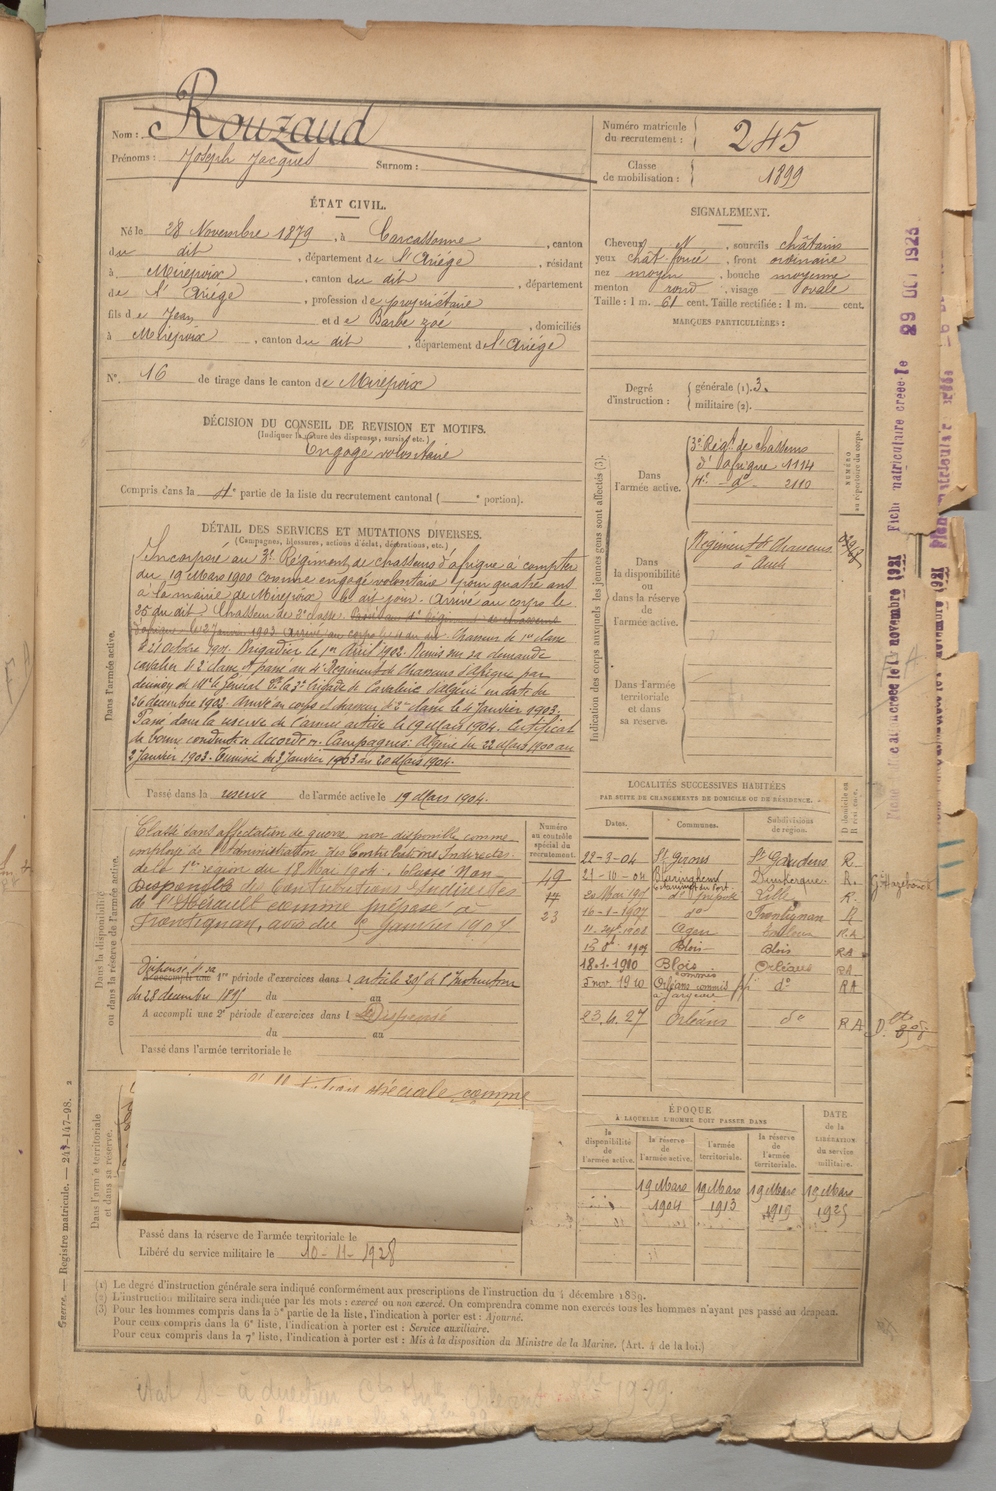 Nom : Rouzaud
Prénoms : Joseph Jacques Surnom :
Numéro matricule du recrutement : 245
Classe de mobilisation : 1899
ÉTAT CIVIL.
Né le 28 Novembre 1879, à Carcassonne, canton
du dit, département de l'Ariège, résidant
à Mirepoix, canton du dit, département
de l'Ariège, profession de propriétaire
fils de Jean et de Barbe Zoé, domiciliés
à Mirepoix, canton du dit, département de l'Ariège
N° 16 de tirage dans le canton de Mirepoix
SIGNALEMENT.
Cheveux N, sourcils châtains
yeux chât. foncé, front ordinaire
nez moyen, bouche moyenne
menton rond, visage ovale
Taille : 1 m. 61 cent. Taille rectifiée : 1 m. cent.
MARQUES PARTICULIÈRES :
Degré d'instruction : générale (1). 3.
militaire (2).
DÉCISION DU CONSEIL DE REVISION ET MOTIFS.
(Indiquer la nature des dispenses, sursis, etc.)
Engagé volontaire
Compris dans la 4e partie de la liste du recrutement cantonal ( e portion).
DÉTAIL DES SERVICES ET MUTATIONS DIVERSES.
(Campagnes, blessures, actions d'éclat, décorations, etc.)
Dans l'armée active.
Incorporé au 3e Régiment de chasseurs d'afrique à compter
du 19 Mars 1900 comme engagé volontaire pour quatre ans
à la mairie de Mirepoix le dit jour. Arrivé au corps le
25 du dit Chasseur de 2e classe. Passé au 4e Régiment de chasseurs
d'afrique le 2 Janvier 1903 Arrivé au corps le 4 du dit Chasseur de 1re classe
le 21 Octobre 1901. Brigadier le 1er Avril 1902. Remis sur sa demande
cavalier de 2e classe et passé au 4e Régiment de Chasseurs d'Afrique par
décision de Mr le Général Ct la 3e brigade de Cavalerie d'Algérie en date du
26 décembre 1902. Arrivé au corps et chasseur de 2e classe le 4 Janvier 1903.
Passé dans la réserve de l'armée active le 19 Mars 1904. Certificat
de bonne conduite Accordé. Campagnes: Algérie du 22 Mars 1900 au
2 Janvier 1903. Tunisie du 3 Janvier 1903 au 20 Mars 1904.
Passé dans la réserve de l'armée active le 19 Mars 1904.
Indication des corps auxquels les jeunes gens sont affectés (3).
NUMÉRO au répertoire du corps.
Dans l'armée active.
3e Régt de chasseurs
d'afrique 1114
4e do 2110
Dans la disponibilité ou dans la réserve de l'armée active.
Régiment de Chasseurs
à Auch
Dans l'armée territoriale et dans sa réserve.
Dans la disponibilité ou dans la réserve de l'armée active.
Classé dans affectation de guerre non disponible comme
employé de l'Administration des Contributions Indirectes
de la 1re région du 18 Mai 1904. Classé Non
Disponible des Contributions Indirectes
de l'Hérault comme préposé à
Frontignan, avis du 5 Janvier 1907
Numéro au contrôle spécial du recrutement.
49
17
23
Dispensé de sa
A accompli une 1re période d'exercices dans l article 245 de l'Instruction
du 28 décembre 1895 du au
A accompli une 2e période d'exercices dans l Dispensé
du au
Passé dans l'armée territoriale le
LOCALITÉS SUCCESSIVES HABITÉES
PAR SUITE DE CHANGEMENTS DE DOMICILE OU DE RÉSIDENCE.
Dates. Communes. Subdivisions de région. D domicile ou R résidence.
22-3-04 St Girons St Gaudens R.
21-10-04 Dunkerque R.
20 Mai 1905 do Lille R.
16-1-1907 do Frontignan R
1908 Agen
1909 Blois Blois RA
18.1.1910 Blois Orléans RA
3 nov. 1910 Orléans commis do RA
23.4.27 Orléans do RA
Dans l'armée territoriale et dans sa réserve.
spéciale comme
Passé dans la réserve de l'armée territoriale le
Libéré du service militaire le 10-11-1928
ÉPOQUE
À LAQUELLE L'HOMME DOIT PASSER DANS
la disponibilité de l'armée active. la réserve de l'armée active. l'armée territoriale. la réserve de l'armée territoriale. DATE de la LIBÉRATION du service militaire.
19 Mars 19 Mars 19 Mars 19 Mars
1904 1913 1919 1925
(1) Le degré d'instruction générale sera indiqué conformément aux prescriptions de l'instruction du 4 décembre 1889.
(2) L'instruction militaire sera indiquée par les mots : exercé ou non exercé. On comprendra comme non exercés tous les hommes n'ayant pas passé au drapeau.
(3) Pour les hommes compris dans la 5e partie de la liste, l'indication à porter est : Ajourné.
Pour ceux compris dans la 6e liste, l'indication à porter est : Service auxiliaire.
Pour ceux compris dans la 7e liste, l'indication à porter est : Mis à la disposition du Ministre de la Marine. (Art. 4 de la loi.)
Guerre. — Registre matricule. — 247-147-98. 2
Fiche matriculaire créée le 29 OCT 1923